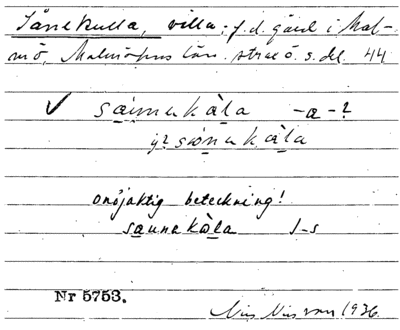 Sånekulla, villa; f.d. gård i Mal-
mö, Malmöhus län. strax ö. s. del. 44
✓ saunakåla -a-?
y? sånakåla
onöjaktig beteckning!
saunekåla J-s
Nr 5753.
1936